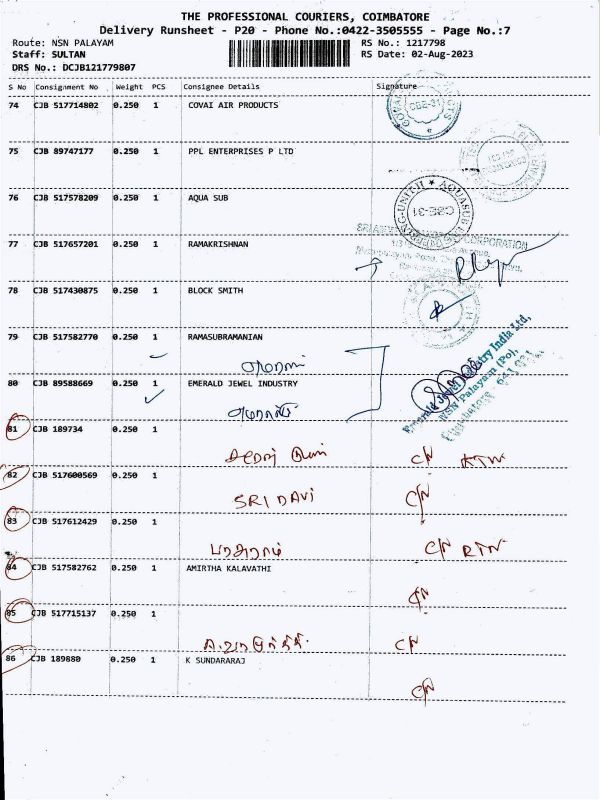 THE PROFESSIONAL COURIERS, COIMBATORE
Delivery Runsheet - P20 - Phone No.:0422-3505555 - Page No.:7
Route: NSN PALAYAM RS No.: 1217798
Staff: SULTAN RS Date: 02-Aug-2023
DRS No.: DCJB121779807
S No Consignment No Weight PCS Consignee Details Signature
74 CJB 517714802 0.250 1 COVAI AIR PRODUCTS
CBE-31
75 CJB 89747177 0.250 1 PPL ENTERPRISES P LTD
76 CJB 517578209 0.250 1 AQUA SUB
CBE-31
77 CJB 517657201 0.250 1 RAMAKRISHNAN
78 CJB 517430875 0.250 1 BLOCK SMITH
79 CJB 517582770 0.250 1 RAMASUBRAMANIAN
80 CJB 89588669 0.250 1 EMERALD JEWEL INDUSTRY
Emerald Jewel Industry India Ltd,
NSN Palayam (Po),
81 CJB 189734 0.250 1
CN RTN
82 CJB 517600569 0.250 1
SRI DAVI CN
83 CJB 517612429 0.250 1
பரசுராம் CN RTN
84 CJB 517582762 0.250 1 AMIRTHA KALAVATHI
CN
85 CJB 517715137 0.250 1
CN
86 CJB 189880 0.250 1 K SUNDARARAJ
CN